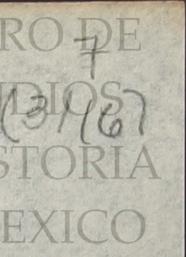 RO DE
7
DIOS
(3)(67
STORIA
EXICO